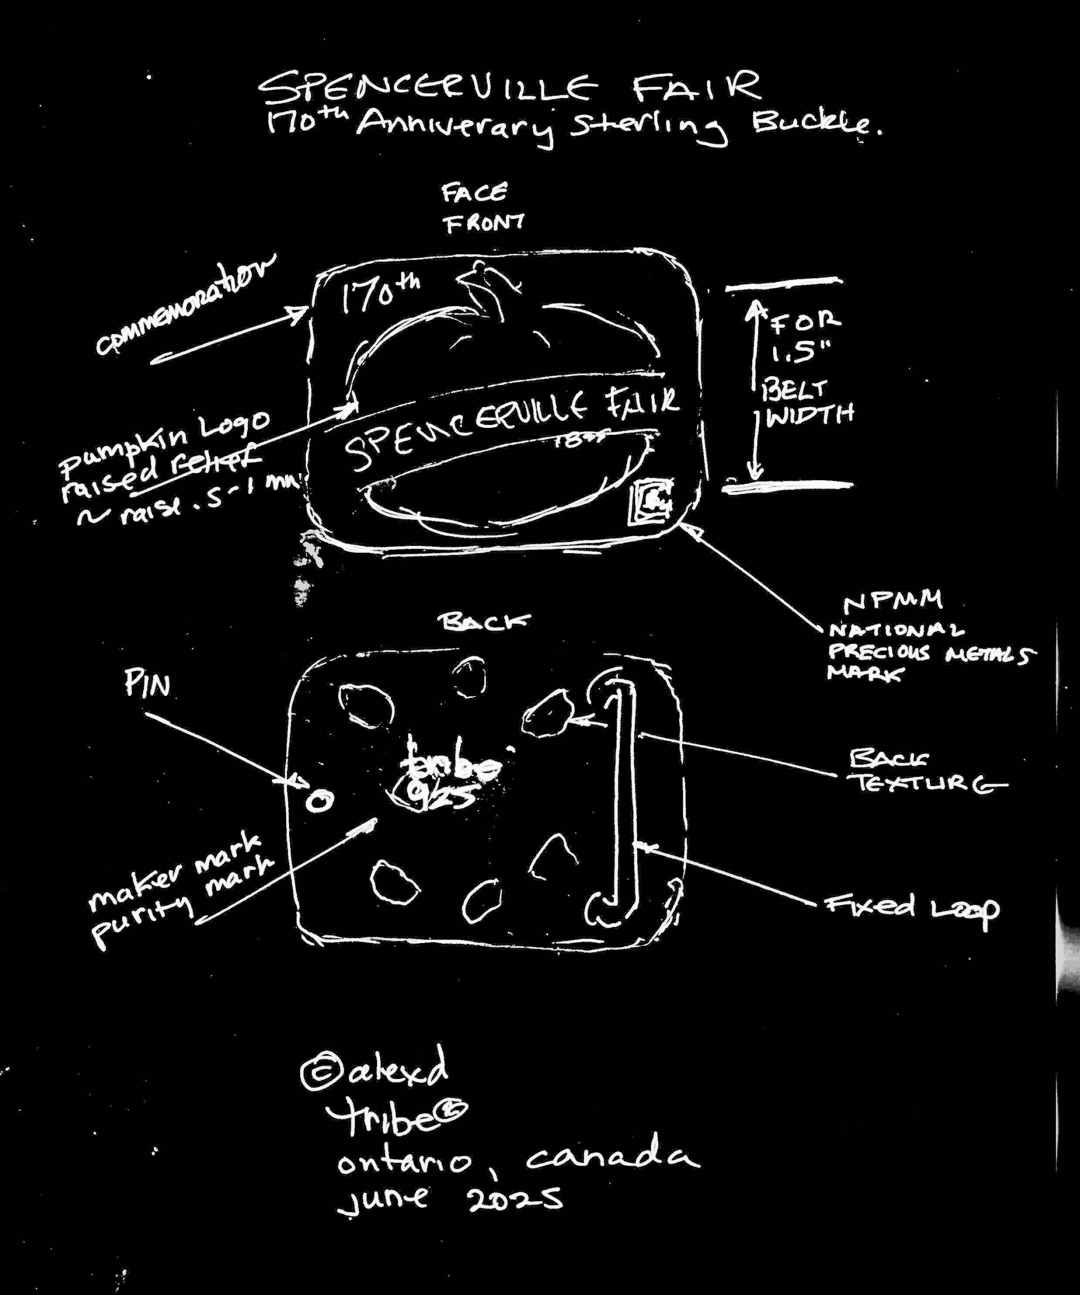 SPENCERVILLE FAIR
170th Anniverary Sterling Buckle.
FACE
FRONT
commemoration
170th
FOR
1.5"
BELT
WIDTH
SPENCERVILLE FAIR
pumpkin Logo
raised relief
~ raise .5-1 mm
NPMM
NATIONAL
PRECIOUS METALS
MARK
BACK
PIN
tribe
925
BACK
TEXTURE
maker mark
purity mark
Fixed Loop
© alexd
tribe®
ontario, canada
june 2025